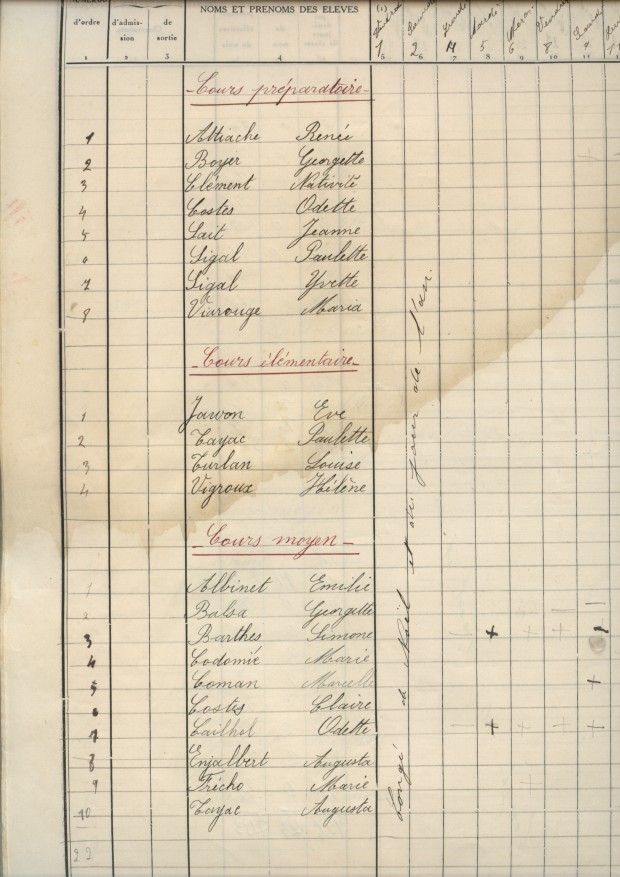 NOMS ET PRENOMS DES ELEVES
d'ordre d'admis-sion de sortie
1 2 3 4 5 6 7 8 9 10 11
1 2 4 5 6 8 9
Cours préparatoire
1 Attiache Renée
2 Boyer Georgette
3 Clément Nativité
4 Costes Odette
5 Sait Jeanne
6 Sigal Paulette
7 Sigal Yvette
8 Viarouge Maria
Cours élémentaire
1 Jawon Eve
2 Tayac Paulette
3 Turlan Louise
4 Vigroux Hélène
Cours moyen
1 Albinet Emilie
2 Balsa Georgette
3 Barthes Simone
4 Codomié Marie
5 Coman Marcelle
6 Costes Claire
7 Cailhol Odette
8 Enjalbert Augusta
9 Tricho Marie
10 Tayac Augusta
22
Congé de Noël et du jour de l'an.